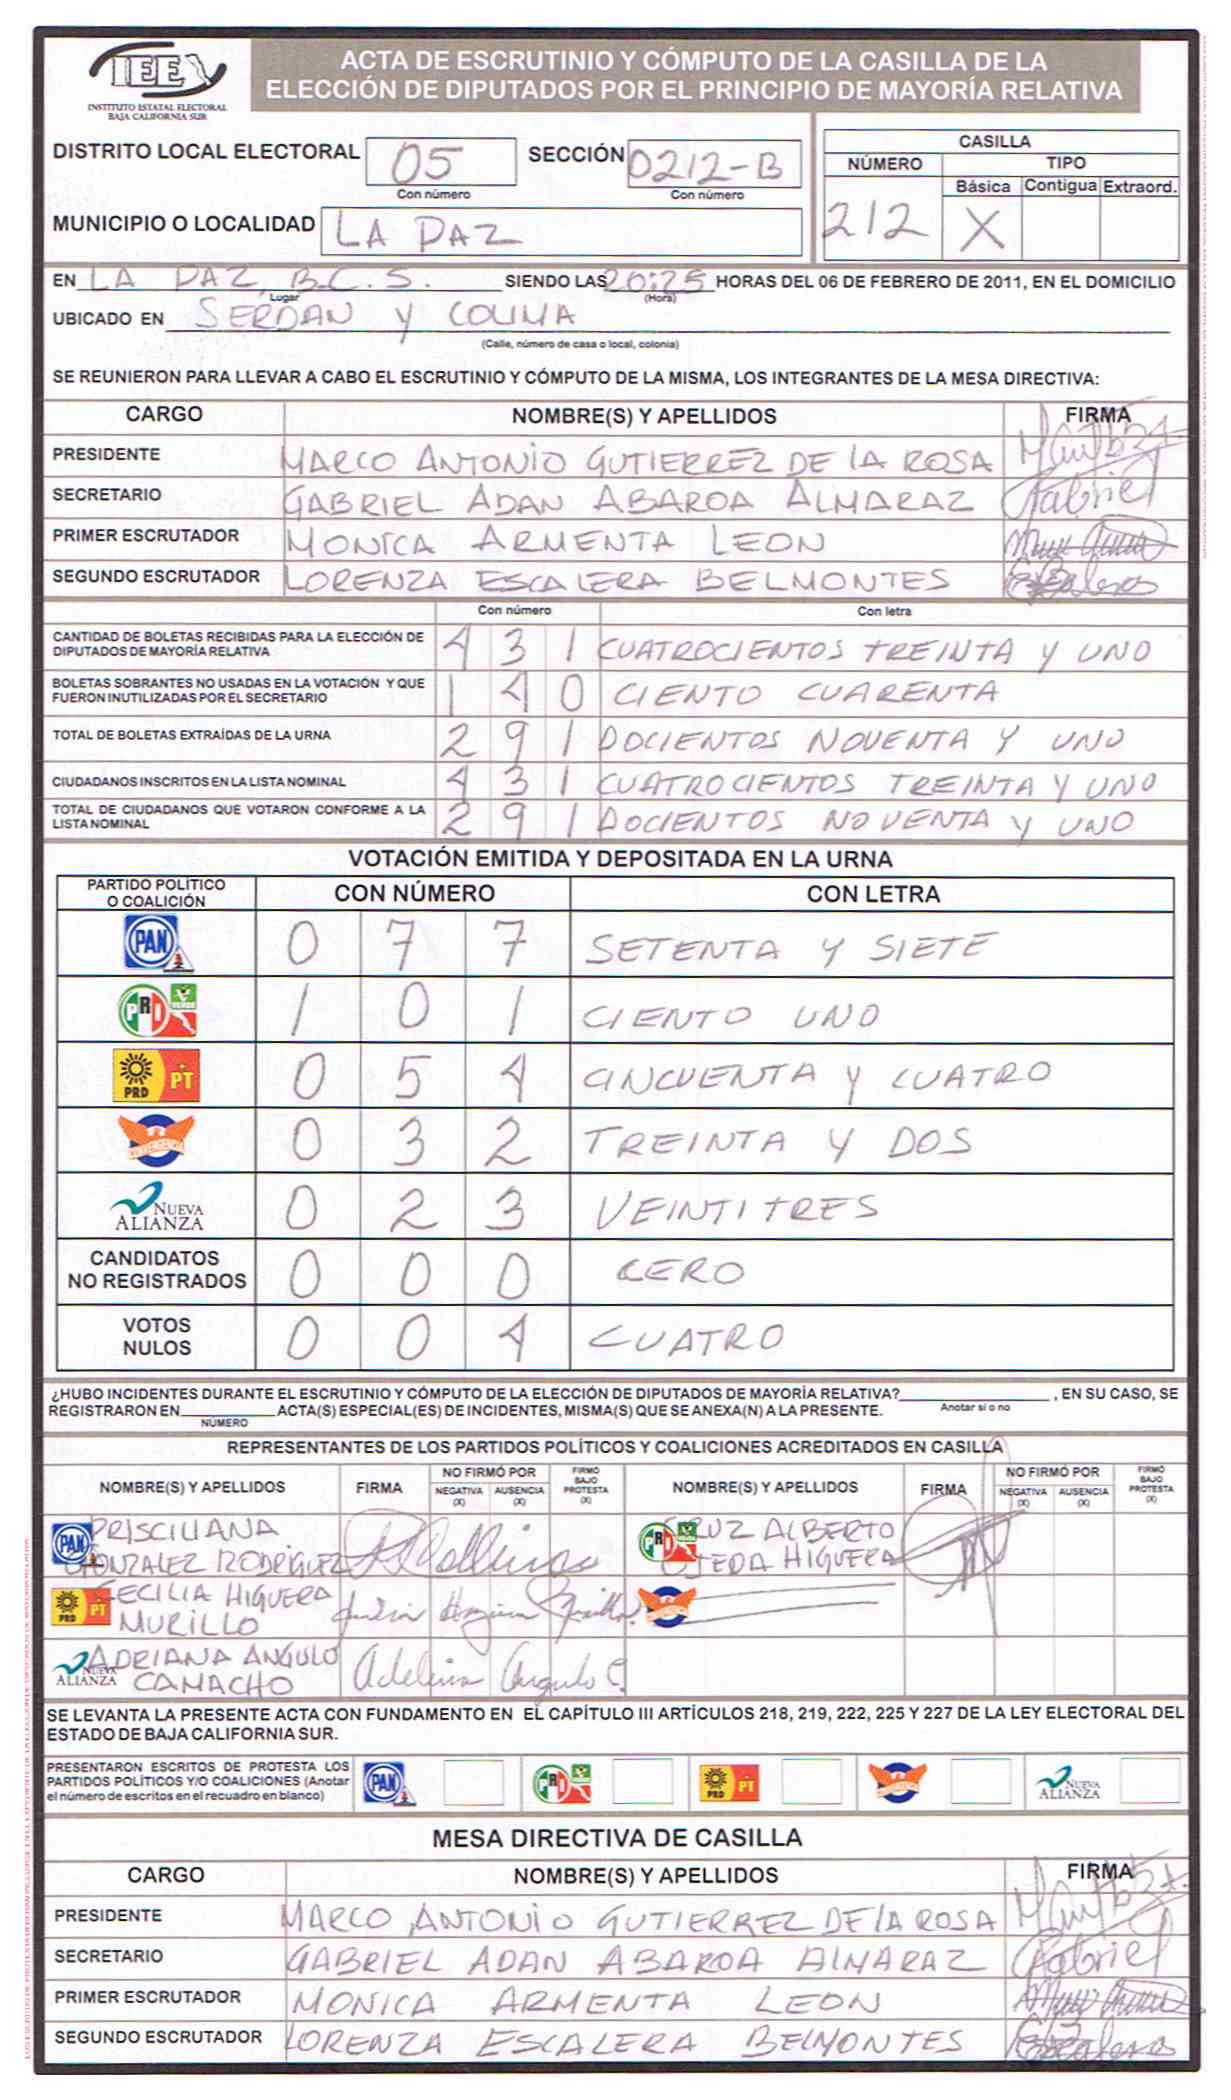 IEE
INSTITUTO ESTATAL ELECTORAL
BAJA CALIFORNIA SUR
ACTA DE ESCRUTINIO Y CÓMPUTO DE LA CASILLA DE LA
ELECCIÓN DE DIPUTADOS POR EL PRINCIPIO DE MAYORÍA RELATIVA
DISTRITO LOCAL ELECTORAL 05 SECCIÓN 0212-B
Con número Con número
MUNICIPIO O LOCALIDAD LA PAZ
CASILLA
NÚMERO TIPO
Básica Contigua Extraord.
212 X
EN LA PAZ, B.C.S. SIENDO LAS 20:25 HORAS DEL 06 DE FEBRERO DE 2011, EN EL DOMICILIO
Lugar (Hora)
UBICADO EN SERDAN Y COLIMA
(Calle, número de casa o local, colonia)
SE REUNIERON PARA LLEVAR A CABO EL ESCRUTINIO Y CÓMPUTO DE LA MISMA, LOS INTEGRANTES DE LA MESA DIRECTIVA:
CARGO NOMBRE(S) Y APELLIDOS FIRMA
PRESIDENTE MARCO ANTONIO GUTIERREZ DE LA ROSA
SECRETARIO GABRIEL ADAN ABAROA ALMARAZ Gabriel
PRIMER ESCRUTADOR MONICA ARMENTA LEON
SEGUNDO ESCRUTADOR LORENZA ESCALERA BELMONTES
Con número Con letra
CANTIDAD DE BOLETAS RECIBIDAS PARA LA ELECCIÓN DE
DIPUTADOS DE MAYORÍA RELATIVA 431 CUATROCIENTOS TREINTA Y UNO
BOLETAS SOBRANTES NO USADAS EN LA VOTACIÓN Y QUE
FUERON INUTILIZADAS POR EL SECRETARIO 140 CIENTO CUARENTA
TOTAL DE BOLETAS EXTRAÍDAS DE LA URNA 291 DOCIENTOS NOVENTA Y UNO
CIUDADANOS INSCRITOS EN LA LISTA NOMINAL 431 CUATROCIENTOS TREINTA Y UNO
TOTAL DE CIUDADANOS QUE VOTARON CONFORME A LA
LISTA NOMINAL 291 DOCIENTOS NOVENTA Y UNO
VOTACIÓN EMITIDA Y DEPOSITADA EN LA URNA
PARTIDO POLÍTICO
O COALICIÓN CON NÚMERO CON LETRA
PAN 0 7 7 SETENTA Y SIETE
PRI VERDE 1 0 1 CIENTO UNO
PRD PT 0 5 4 CINCUENTA Y CUATRO
CONVERGENCIA 0 3 2 TREINTA Y DOS
NUEVA
ALIANZA 0 2 3 VEINTITRES
CANDIDATOS
NO REGISTRADOS 0 0 0 CERO
VOTOS
NULOS 0 0 4 CUATRO
¿HUBO INCIDENTES DURANTE EL ESCRUTINIO Y CÓMPUTO DE LA ELECCIÓN DE DIPUTADOS DE MAYORÍA RELATIVA? , EN SU CASO, SE
Anotar si o no
REGISTRARON EN ACTA(S) ESPECIAL(ES) DE INCIDENTES, MISMA(S) QUE SE ANEXA(N) A LA PRESENTE.
NÚMERO
REPRESENTANTES DE LOS PARTIDOS POLÍTICOS Y COALICIONES ACREDITADOS EN CASILLA
NOMBRE(S) Y APELLIDOS FIRMA NO FIRMÓ POR NEGATIVA (X) AUSENCIA (X) FIRMÓ BAJO PROTESTA (X) NOMBRE(S) Y APELLIDOS FIRMA NO FIRMÓ POR NEGATIVA (X) AUSENCIA (X) FIRMÓ BAJO PROTESTA (X)
PAN PRISCILIANA
GONZALEZ RODRIGUEZ
PRI CRUZ ALBERTO
OJEDA HIGUERA
PRD PT CECILIA HIGUERA
MURILLO
CONVERGENCIA
NUEVA
ALIANZA ADRIANA ANGULO
CAMACHO Angulo C.
SE LEVANTA LA PRESENTE ACTA CON FUNDAMENTO EN EL CAPÍTULO III ARTÍCULOS 218, 219, 222, 225 Y 227 DE LA LEY ELECTORAL DEL
ESTADO DE BAJA CALIFORNIA SUR.
PRESENTARON ESCRITOS DE PROTESTA LOS
PARTIDOS POLÍTICOS Y/O COALICIONES (Anotar
el número de escritos en el recuadro en blanco)
PAN PRI PRD PT CONVERGENCIA NUEVA ALIANZA
MESA DIRECTIVA DE CASILLA
CARGO NOMBRE(S) Y APELLIDOS FIRMA
PRESIDENTE MARCO ANTONIO GUTIERREZ DE LA ROSA
SECRETARIO GABRIEL ADAN ABAROA ALMARAZ Gabriel
PRIMER ESCRUTADOR MONICA ARMENTA LEON
SEGUNDO ESCRUTADOR LORENZA ESCALERA BELMONTES